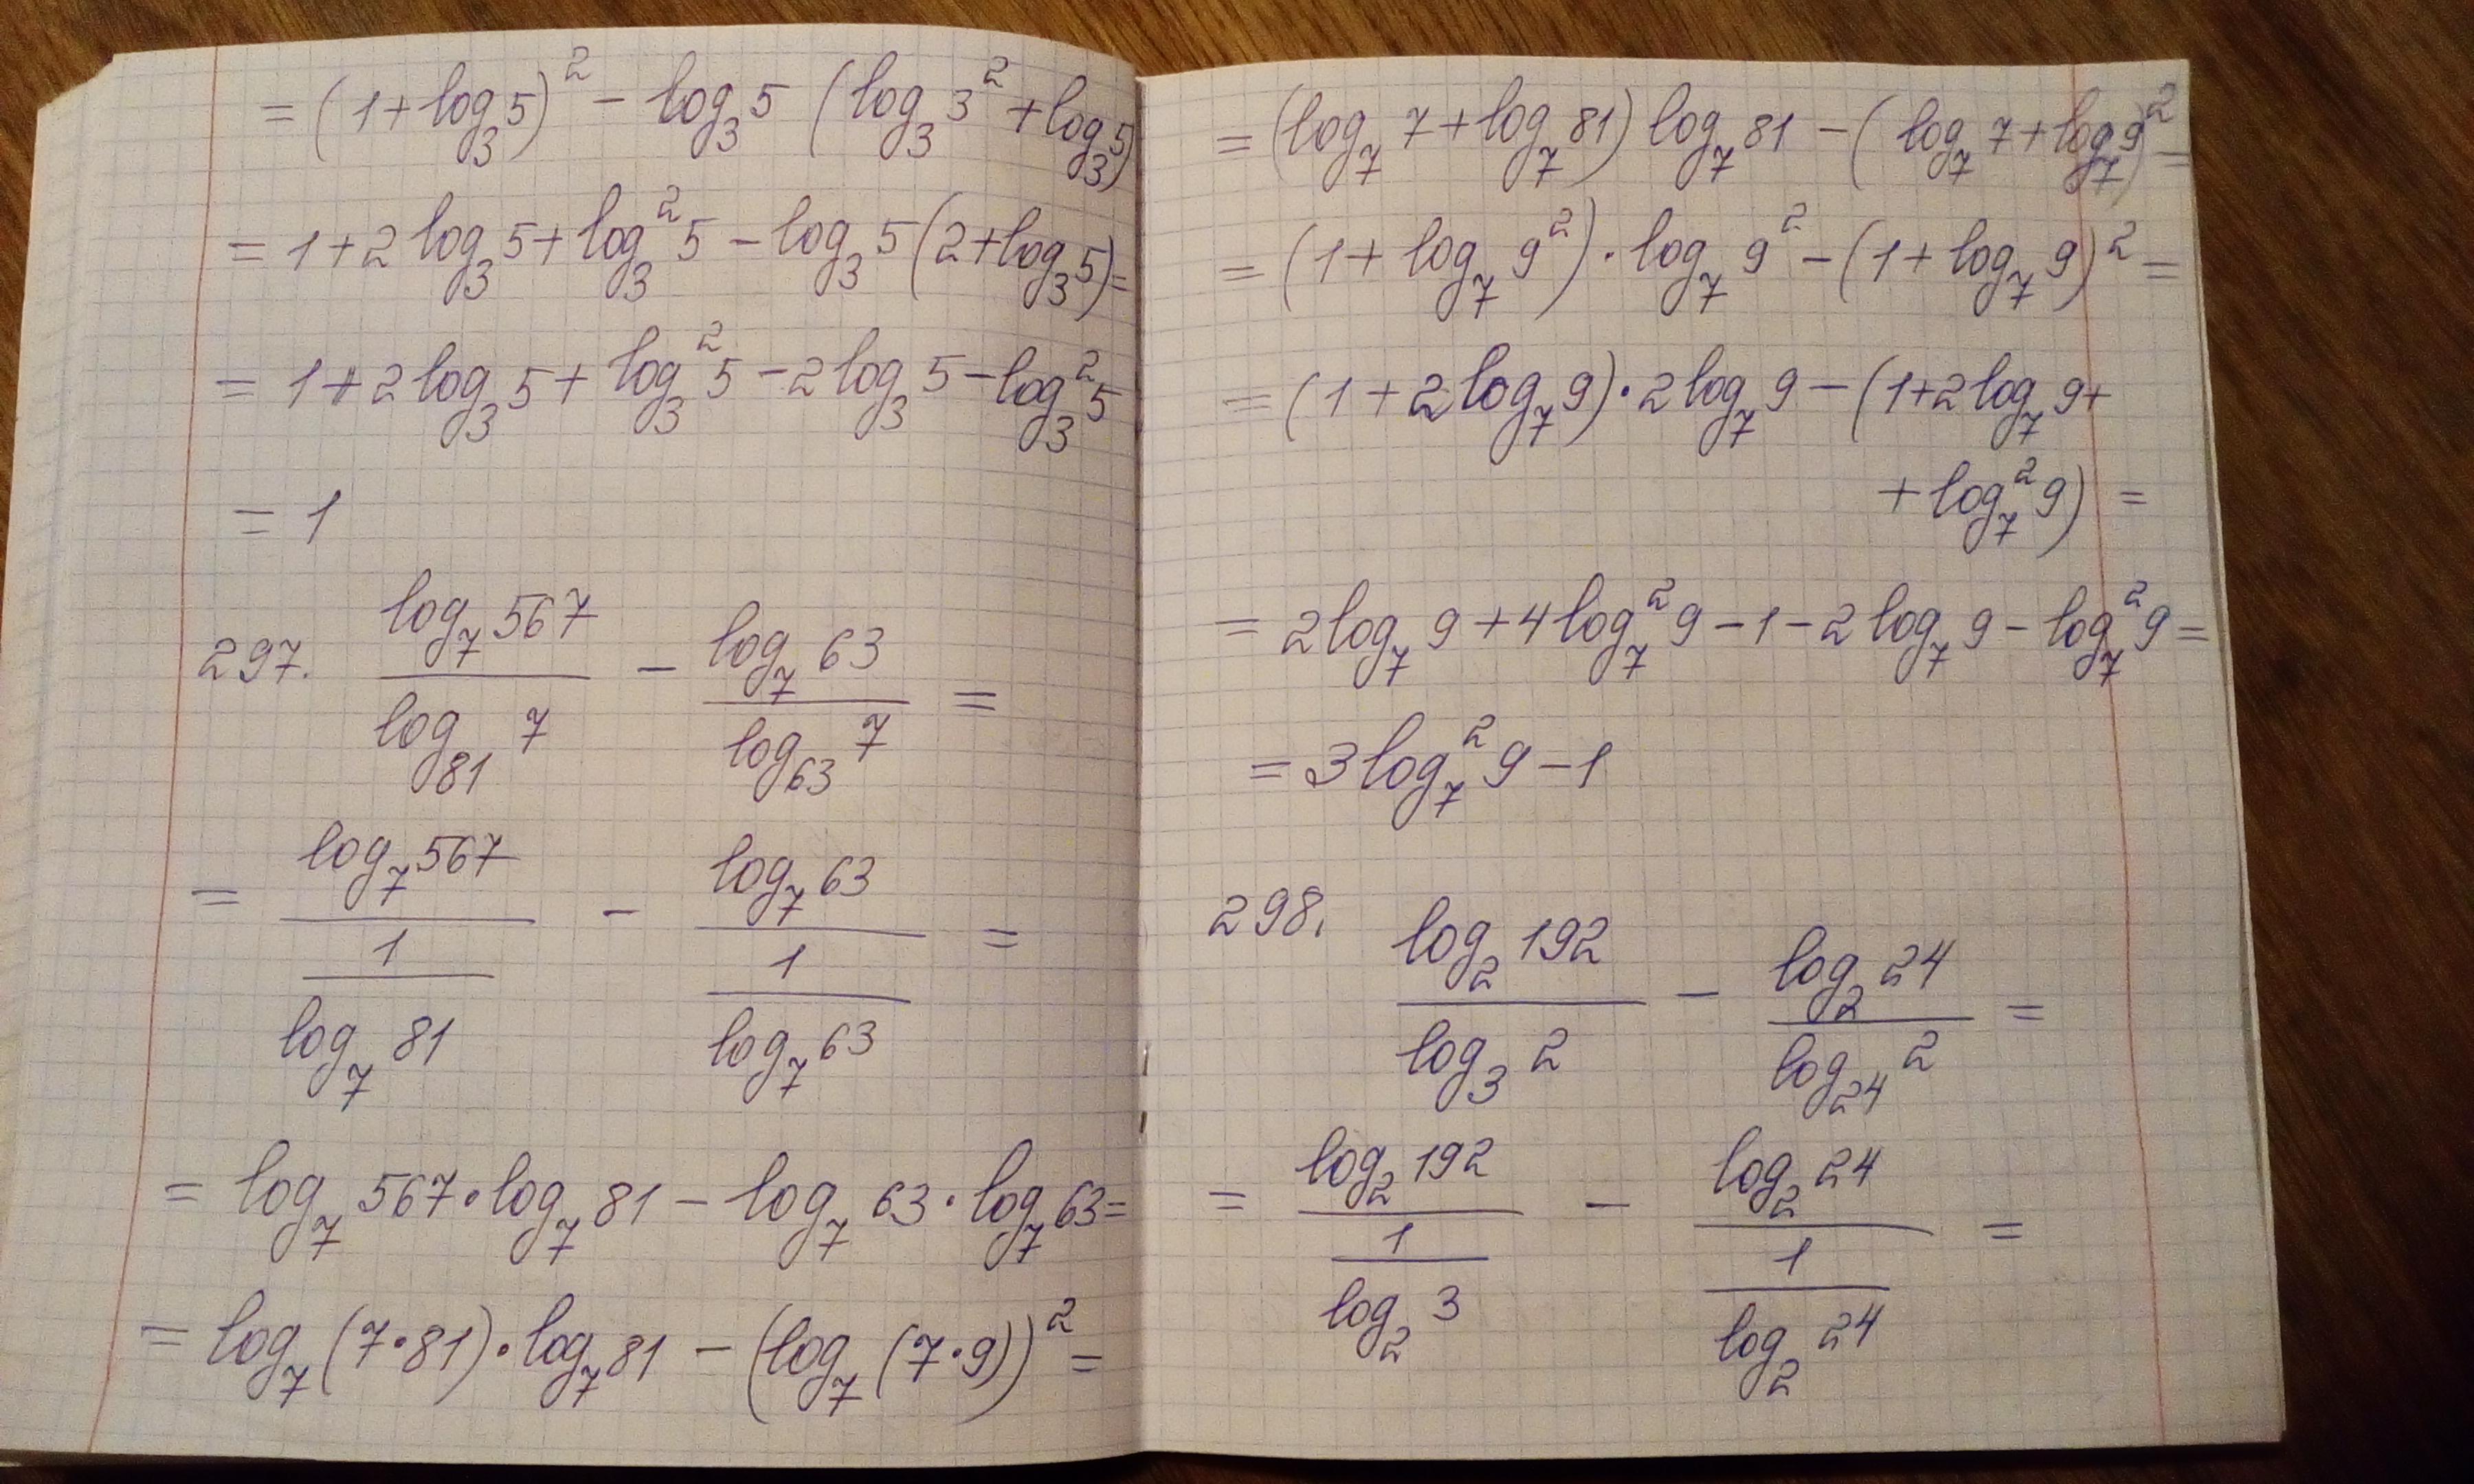 = (1 + log₃ 5)² − log₃ 5 (log₃ 3² + log₃ 5)
= 1 + 2 log₃ 5 + log₃² 5 − log₃ 5 (2 + log₃ 5) =
= 1 + 2 log₃ 5 + log₃² 5 − 2 log₃ 5 − log₃² 5
= 1
297. (log₇ 567)/(log₈₁ 7) − (log₇ 63)/(log₆₃ 7) =
= (log₇ 567)/(1/(log₇ 81)) − (log₇ 63)/(1/(log₇ 63)) =
= log₇ 567 · log₇ 81 − log₇ 63 · log₇ 63 =
= log₇ (7·81) · log₇ 81 − (log₇ (7·9))² =
= (log₇ 7 + log₇ 81) log₇ 81 − (log₇ 7 + log₇ 9)² =
= (1 + log₇ 9²) · log₇ 9² − (1 + log₇ 9)² =
= (1 + 2 log₇ 9) · 2 log₇ 9 − (1 + 2 log₇ 9 +
+ log₇² 9) =
= 2 log₇ 9 + 4 log₇² 9 − 1 − 2 log₇ 9 − log₇² 9 =
= 3 log₇² 9 − 1
298. (log₂ 192)/(log₃ 2) − (log₂ 24)/(log₂₄ 2) =
= (log₂ 192)/(1/(log₂ 3)) − (log₂ 24)/(1/(log₂ 24)) =